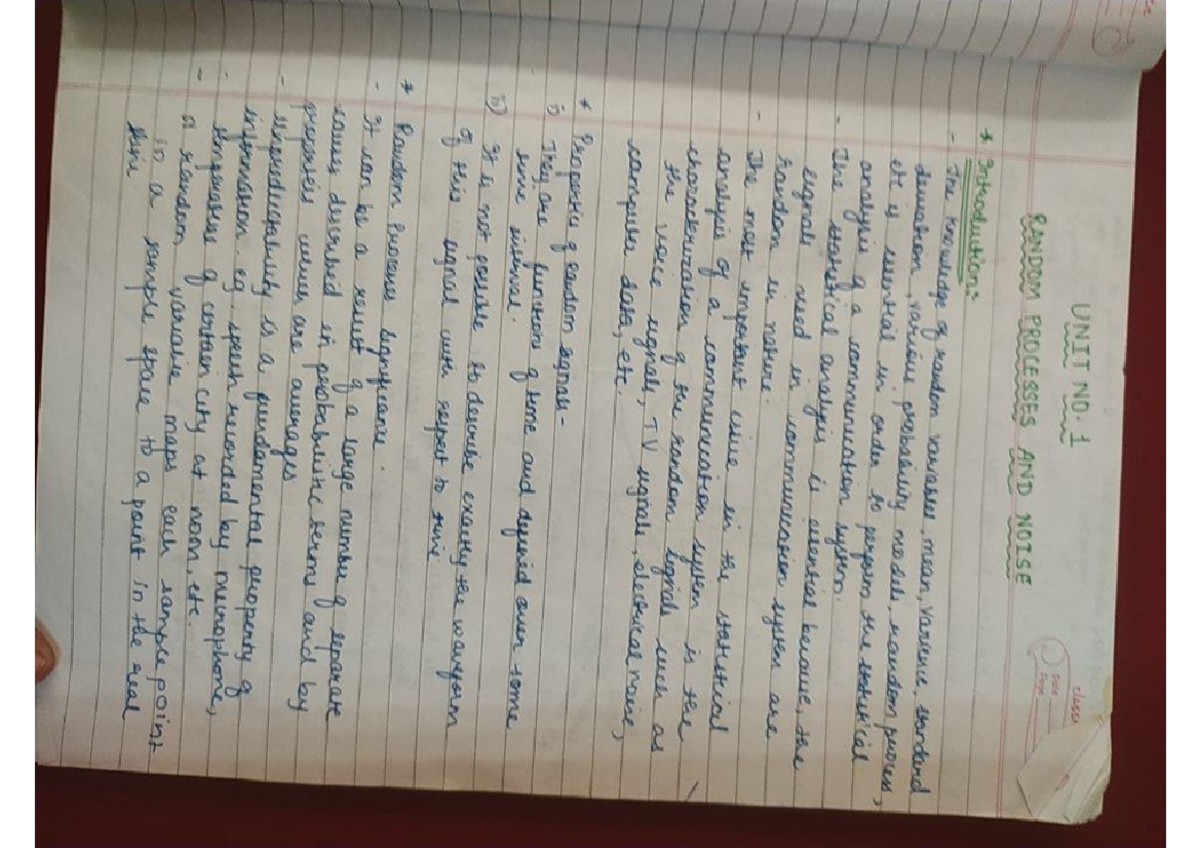 UNIT NO. 1
RANDOM PROCESSES AND NOISE
* Introduction:-
- The knowledge of random variables, mean, Variance, standard
deviation, various probability models, random process,
etc is essential in order to perform the statistical
analysis of a communication system.
- The statistical analysis is essential because, the
signals used in communication system are
Random in nature.
- The most important issue in the statistical
analysis of a communication system is the
characterization of the random signals such as
the voice signals, TV signals, electrical noise,
computer data, etc.
* Properties of random signals-
i) They are functions of time and defined over some
time interval.
ii) It is not possible to describe exactly the waveform
of this signal with respect to time
* Random Process Significance.
- It can be a result of a large number of separate
causes described in probabilistic terms and by
properties which are averages
- Unpredictability is a fundamental property of
information eg. speech recorded by microphone,
- temperature of certain city at noon, etc.
- A random variable maps each sample point
in a sample space to a point in the real
line.